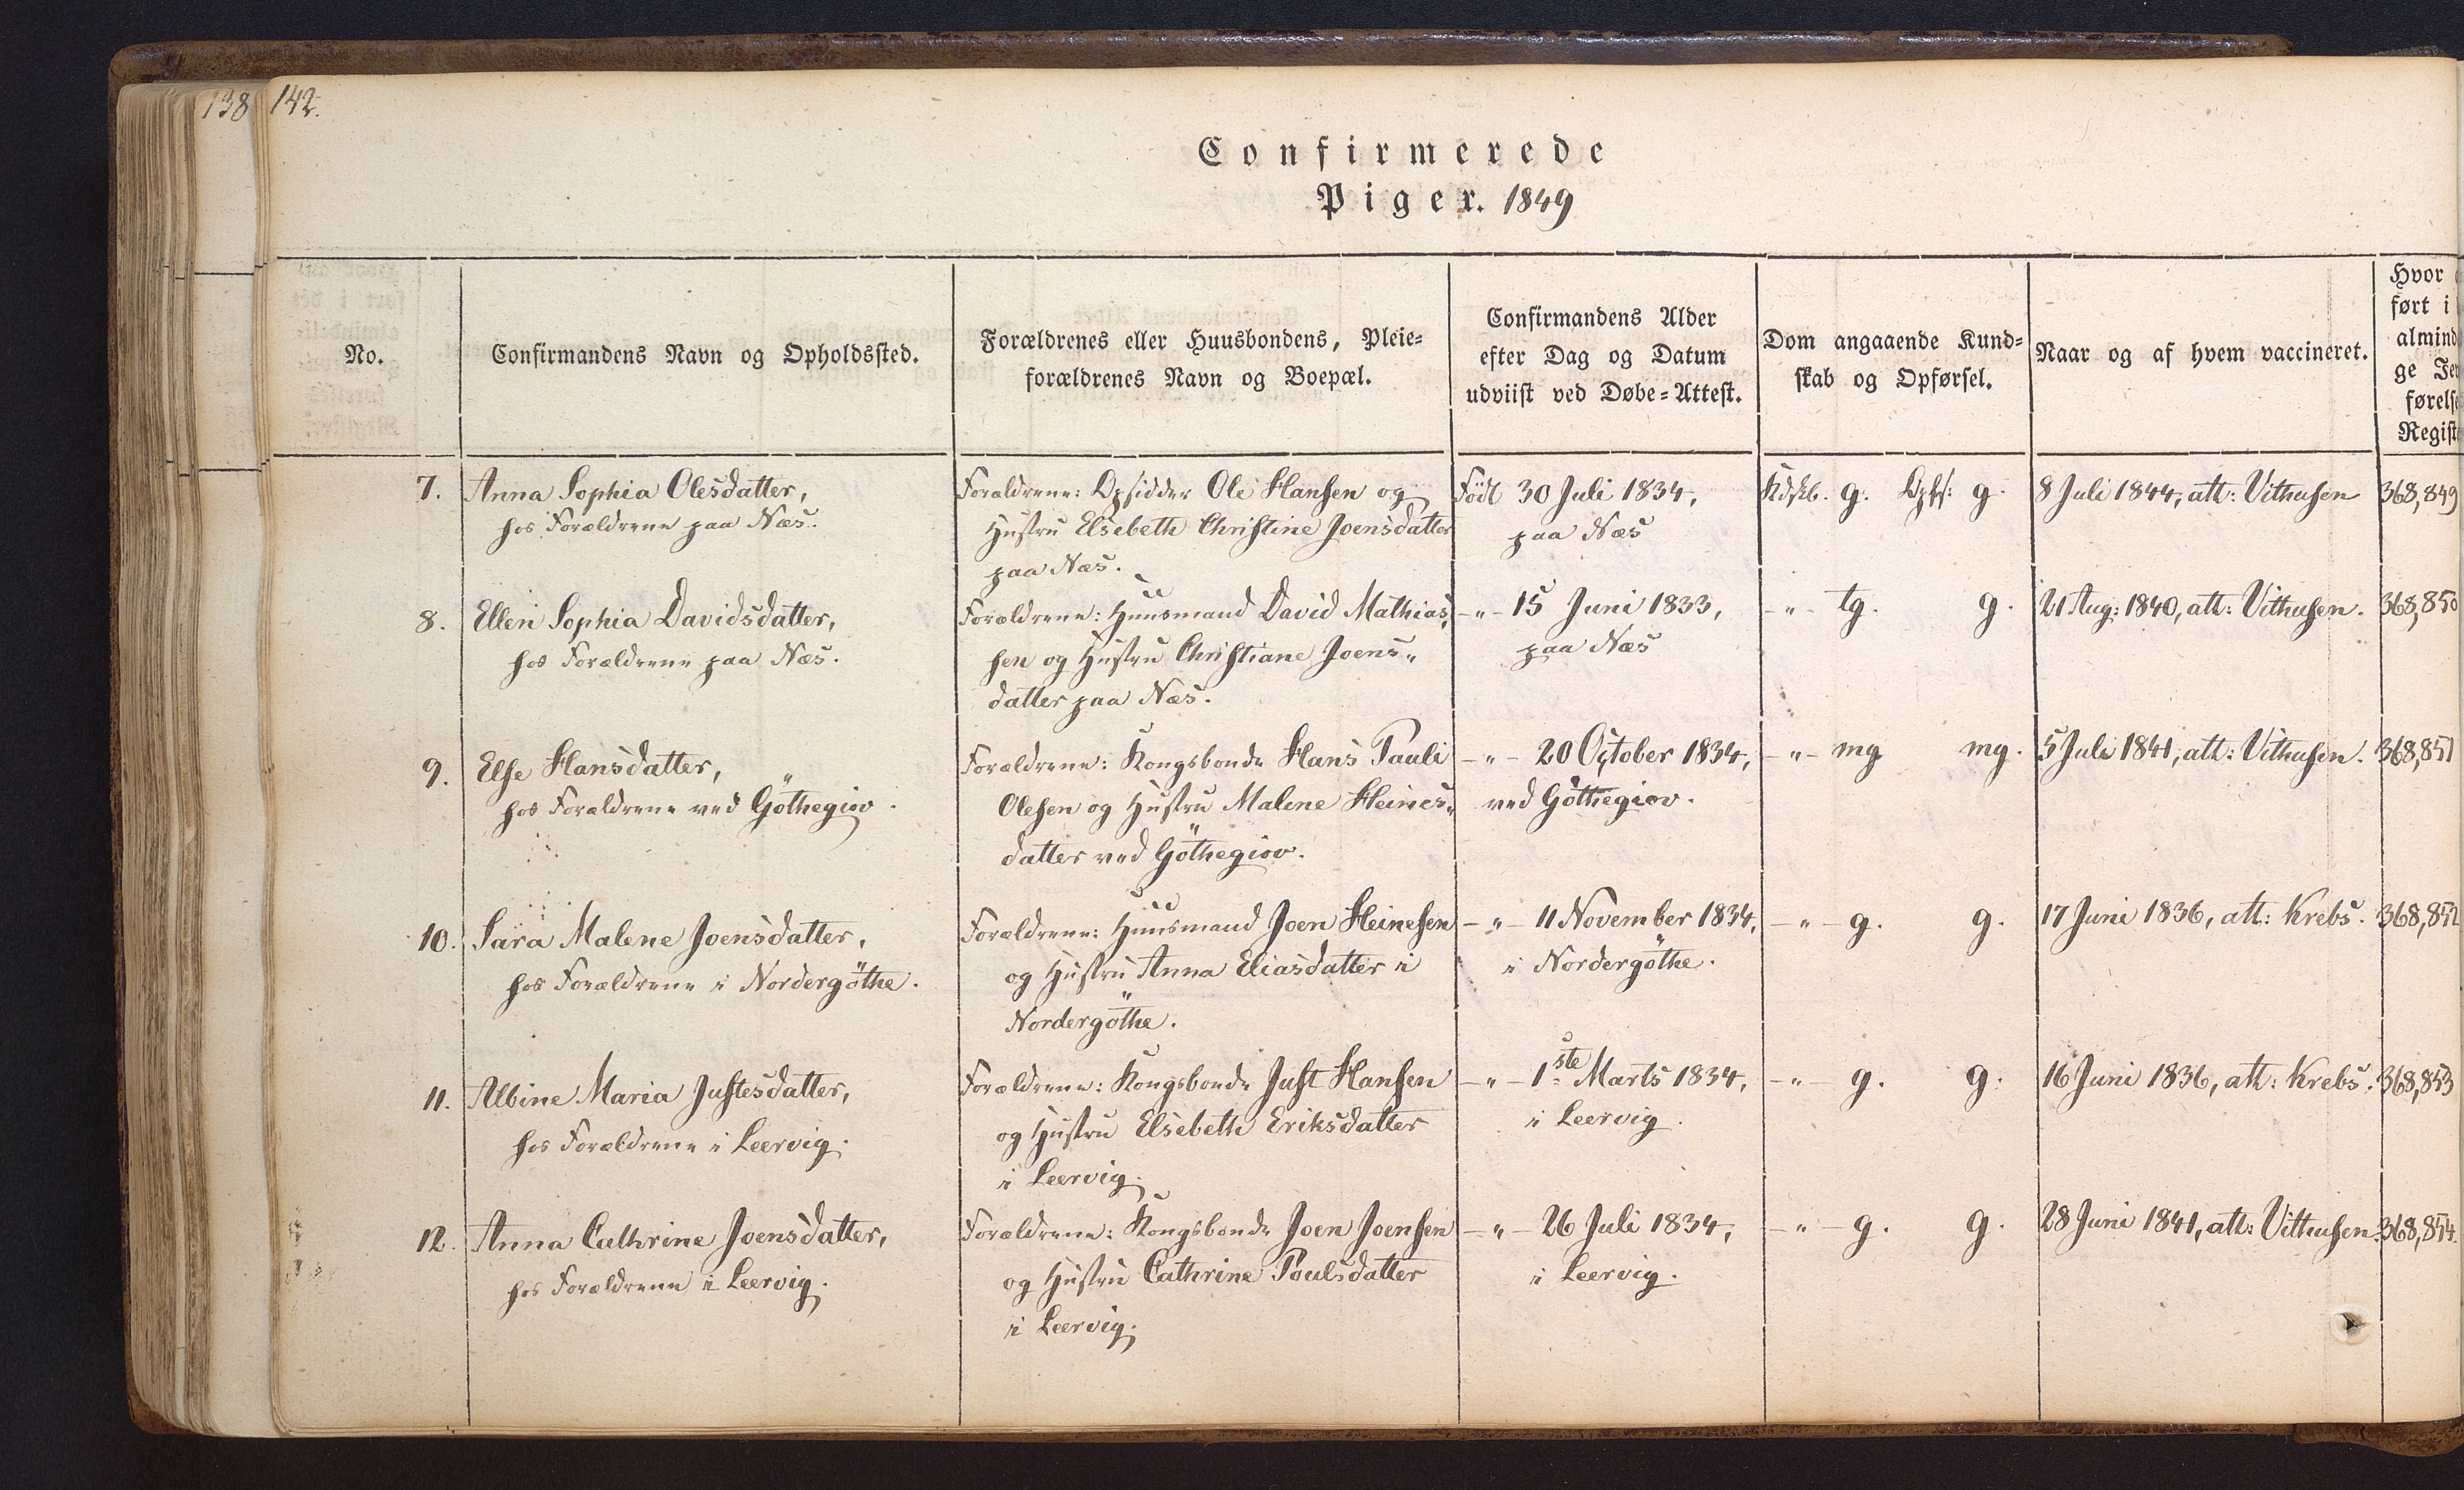 138 142.
Confirmerede
Piger. 1849
No.
Confirmandens Navn og Opholdssted.
Forældrenes eller Huusbondens, Pleie=
forældrenes Navn og Boepæl.
Confirmandens Alder
efter Dag og Datum
udviist ved Døbe=Attest.
Dom angaaende Kund=
skab og Opførsel.
Naar og af hvem vaccineret.
Hvor
ført i
almind
ge Jev
førels
Regist
7. Anna Sophia Olesdatter,
hos Forældrene paa Næs.
Forældrene: Opsidder Ole Hansen og
Hustru Elsebeth Christine Joensdatter
paa Næs.
Födt 30 Juli 1834,
paa Næs
Kdskb. g. Opfs: g.
8 Juli 1844, att: Vithusen
368,849
8. Ellen Sophia Davidsdatter,
hos Forældrene paa Næs.
Forældrene: Huusmand David Mathias„
sen og Hustru Christiane Joens„
datter paa Næs.
-"- 15 Juni 1833,
paa Næs
-"- tg. g.
21 Aug: 1840, att: Vithusen.
368,850
9. Else Hansdatter,
hos Forældrene ved Göthegiov.
Forældrene: Kongsbonde Hans Pauli
Olesen og Hustru Malene Heines„
datter ved Göthegiov.
-"- 20 October 1834,
ved Göthegiov.
-"- mg mg.
5 Juli 1841, att: Vithusen.
368,851
10. Sara Malene Joensdatter,
hos Forældrene i Nordergöthe.
Forældrene: Huusmand Joen Heinesen
og Hustru Anna Eliasdatter i
Nordergöthe.
-"- 11 November 1834,
i Nordergöthe.
-"- g. g.
17 Juni 1836, att: Krebs.
368,852
11. Albine Maria Justesdatter,
hos Forældrene i Leervig.
Forældrene: Kongsbonde Just Hansen
og Hustru Elsebeth Eriksdatter
i Leervig.
-"- 1ste Marts 1834,
i Leervig.
-"- g. g.
16 Juni 1836, att: Krebs.
368,853
12. Anna Cathrine Joensdatter,
hos Forældrene i Leervig.
Forældrene: Kongsbonde Joen Joensen
og Hustru Cathrine Poulsdatter
i Leervig.
-"- 26 Juli 1834,
i Leervig.
-"- g. g.
28 Juni 1841, att: Vithusen.
368,854.